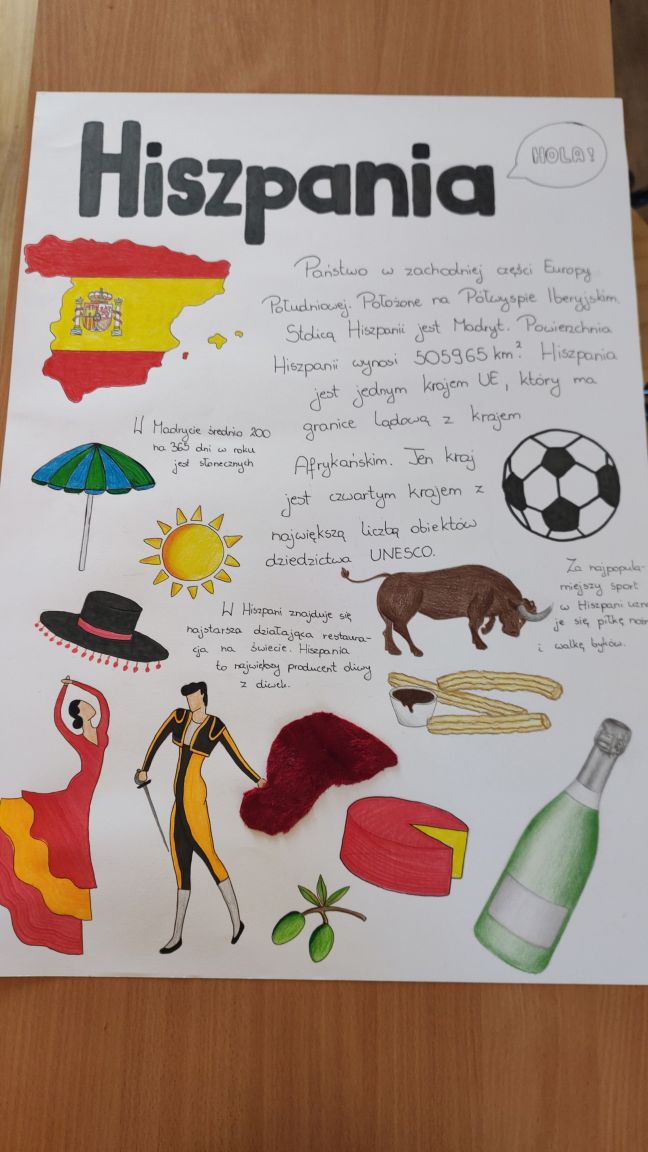 Hiszpania
HOLA!
Państwo w zachodniej części Europy
Południowej. Położone na Półwyspie Iberyjskim.
Stolicą Hiszpanii jest Madryt. Powierzchnia
Hiszpanii wynosi 505965 km². Hiszpania
jest jednym krajem UE, który ma
granice lądową z krajem
Afrykańskim. Ten kraj
jest czwartym krajem z
największą liczbą obiektów
dziedzictwa UNESCO.
W Madrycie średnio 200
na 365 dni w roku
jest słonecznych
Za najpopula-
rniejszy sport
w Hiszpani uzna
je się, piłkę noż
i walkę byków.
W Hiszpani znajduje się
najstarsza działająca restaura-
cja na świecie. Hiszpania
to największy producent oliwy
z oliwek.